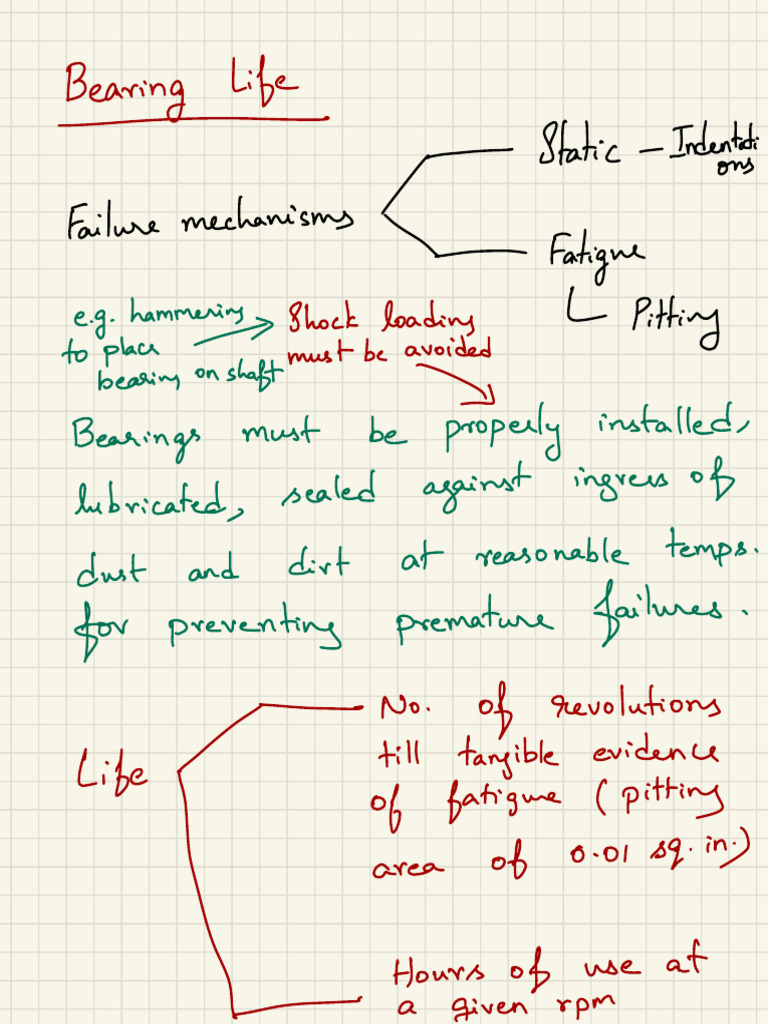 Bearing Life
Static - Indentati
ons
Failure mechanisms
Fatigue
Pitting
e.g. hammering
to place
bearing on shaft
Shock loading
must be avoided
Bearings must be properly installed,
lubricated, sealed against ingress of
dust and dirt at reasonable temps.
for preventing premature failures.
Life
No. of revolutions
till tangible evidence
of fatigue (pitting
area of 0.01 sq. in.)
Hours of use at
a given rpm